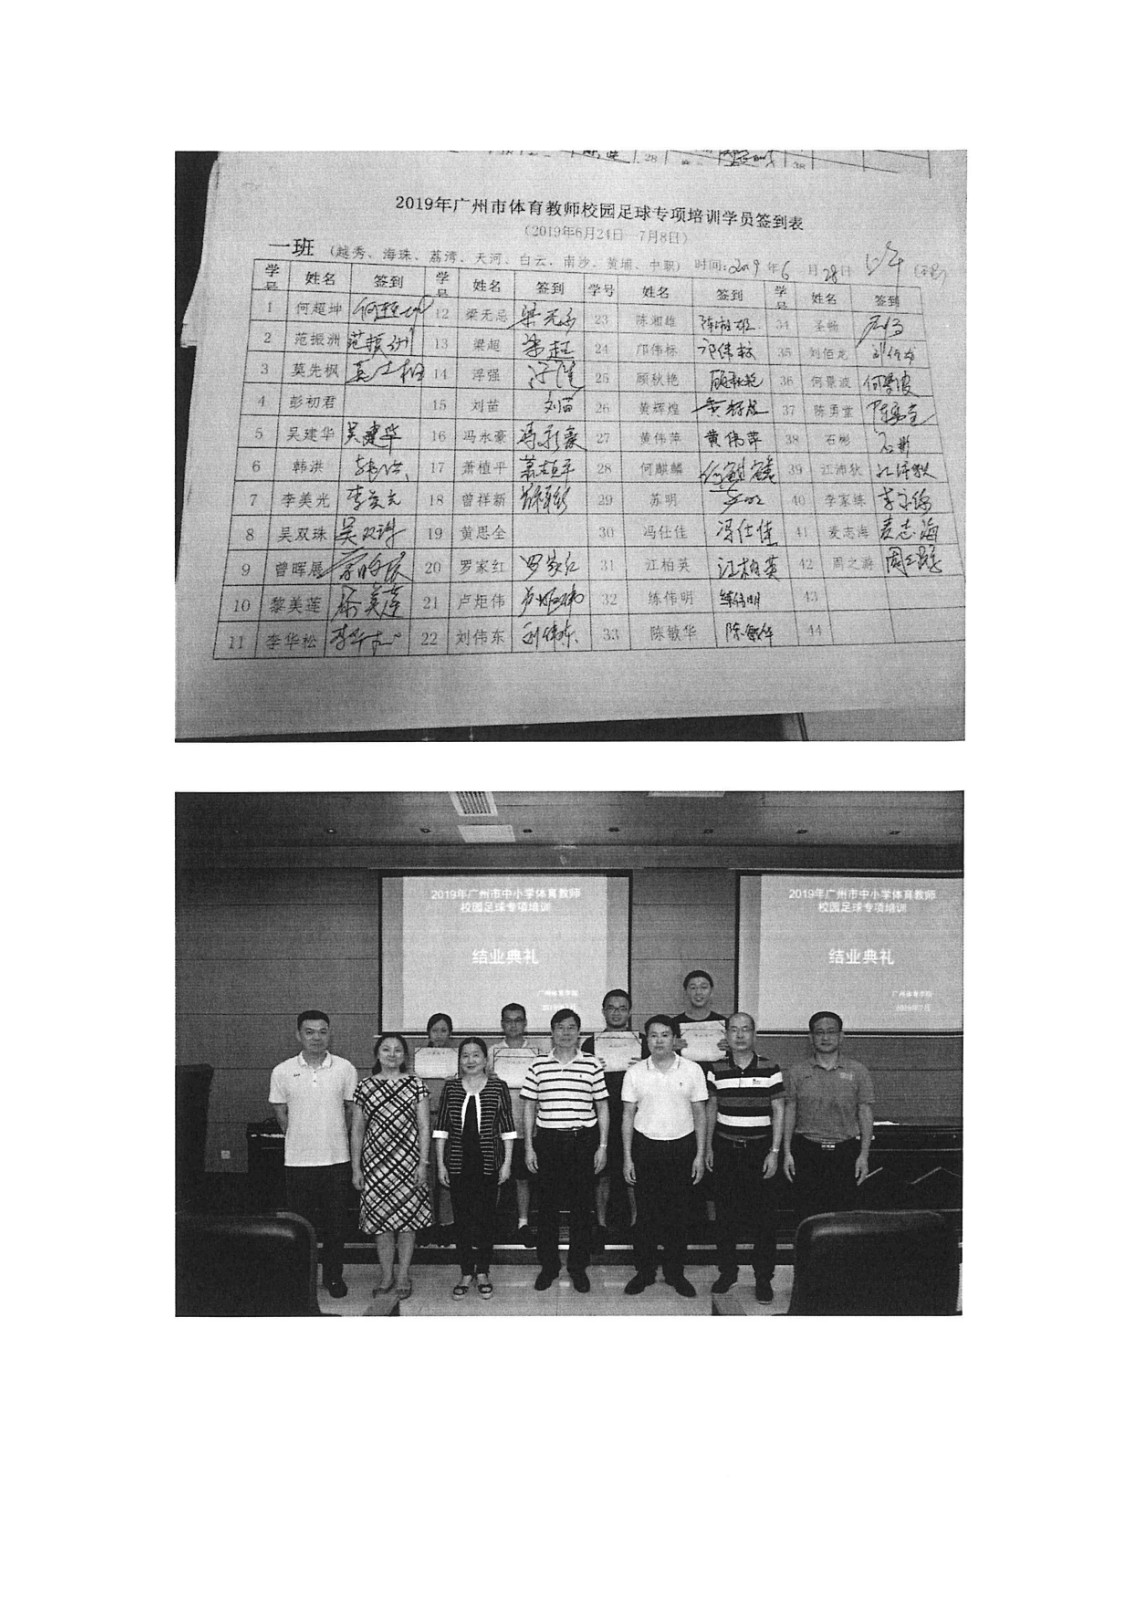 2019年广州市体育教师校园足球专项培训学员签到表
（2019年6月24日—7月8日）
一班 （越秀、海珠、荔湾、天河、白云、南沙、黄埔、中职） 时间：2019年6月28日
学号 姓名 签到 学号 姓名 签到 学号 姓名 签到 学号 姓名 签到
1 何超坤 何超坤 12 梁无忌 梁无忌 23 陈湘雄 陈湘雄 34
2 范振洲 范振洲 13 梁超 梁超 24 邝伟标 邝伟标 35 刘佰龙
3 莫先枫 14 浮强 25 顾秋艳 顾秋艳 36 何景波 何景波
4 彭初君 15 刘苗 刘苗 26 黄辉煌 黄辉煌 37 陈勇堂
5 吴建华 吴建华 16 冯永豪 27 黄伟萍 黄伟萍 38 石彬 石彬
6 韩洪 韩洪 17 萧植平 萧植平 28 何麒麟 何麒麟 39 江沛狄
7 李美光 李美光 18 曾祥新 29 苏明 苏明 40
8 吴双珠 吴双珠 19 黄思全 30 冯仕佳 冯仕佳 41 麦志海 麦志海
9 曾晖展 20 罗家红 罗家红 31 江柏英 江柏英 42 周之游
10 黎美莲 21 卢炬伟 卢炬伟 32 练伟明 练伟明 43
11 李华松 李华松 22 刘伟东 刘伟东 33 陈敏华 陈敏华 44
2019年广州市中小学体育教师
校园足球专项培训
结业典礼
广州体育学院
2019年7月
2019年广州市中小学体育教师
校园足球专项培训
结业典礼
广州体育学院
2019年7月